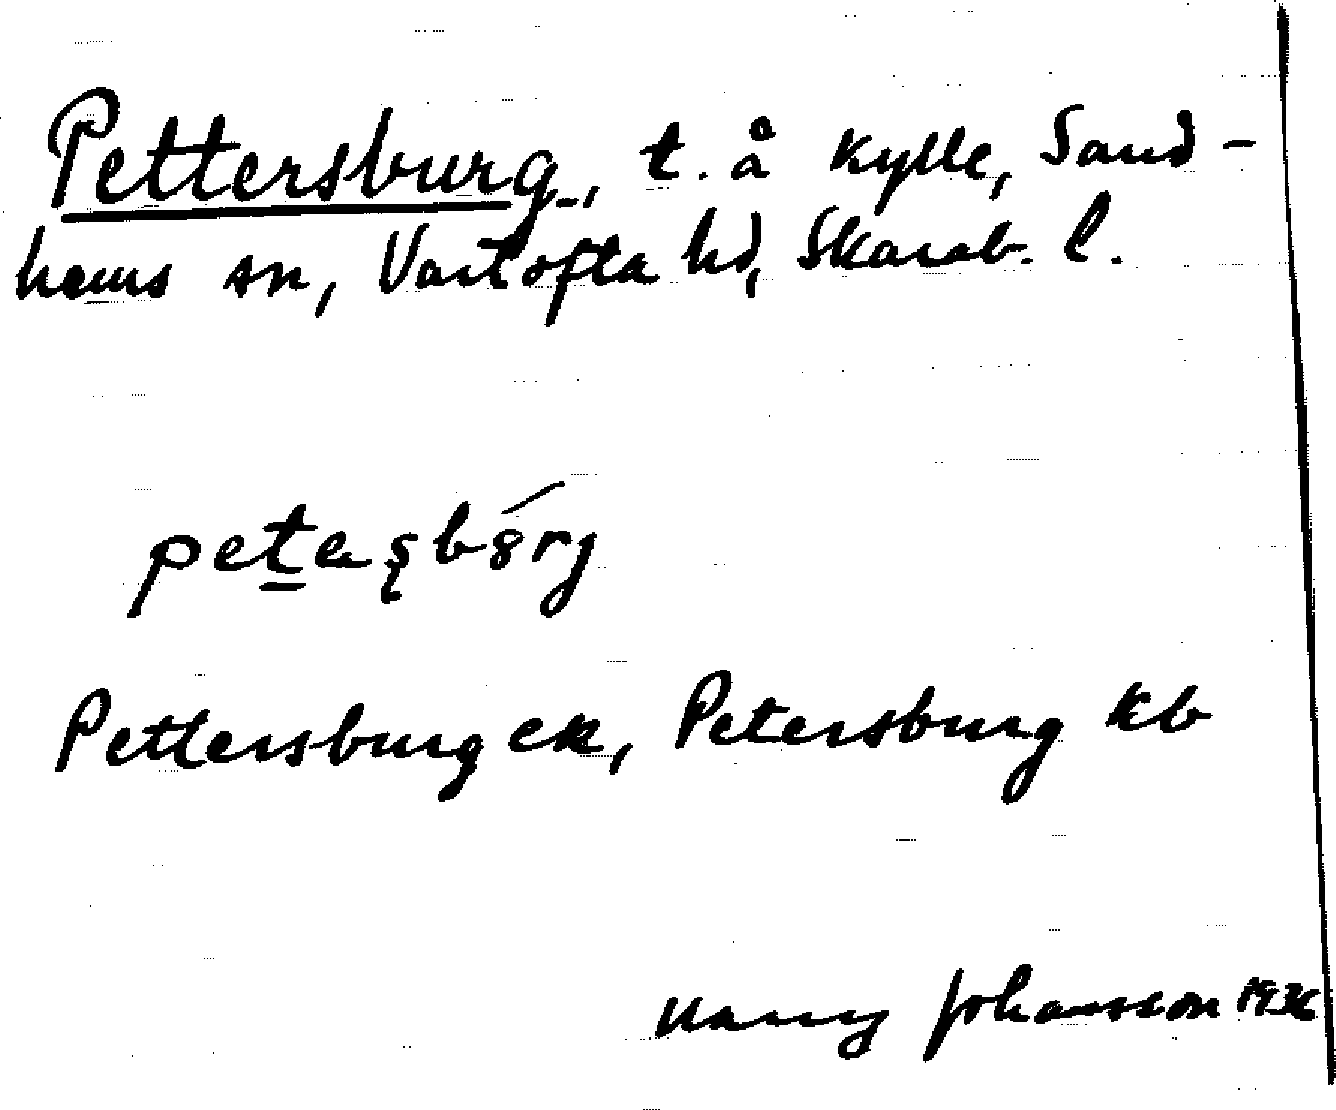 Pettersburg, t. å Kylle, Sand-
hems sn, Vartofta hd, Skarab. l.
Pettersburg ek, Petersburg kb
Harry Johansson 1936